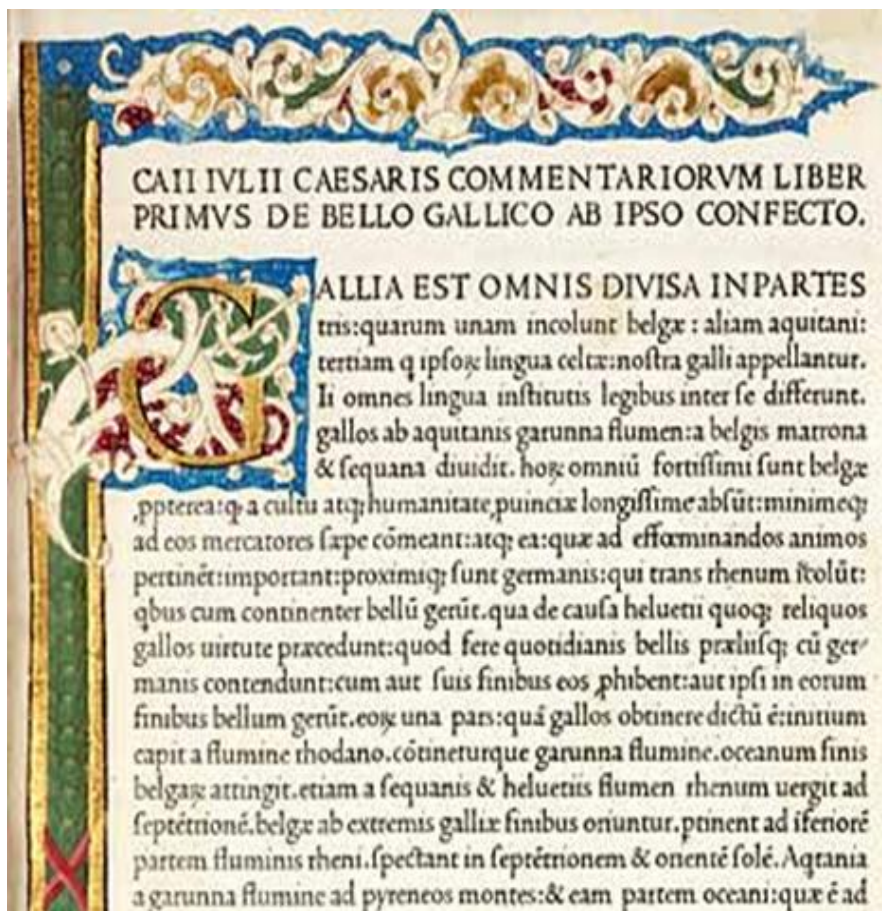 CAII IVLII CAESARIS COMMENTARIORVM LIBER
PRIMVS DE BELLO GALLICO AB IPSO CONFECTO.
GALLIA EST OMNIS DIVISA IN PARTES
tris:quarum unam incolunt belgæ: aliam aquitani:
tertiam q ipsoꝝ lingua celtæ:nostra galli appellantur.
Ii omnes lingua institutis legibus inter se differunt.
gallos ab aquitanis garunna flumen:a belgis matrona
& sequana diuidit. hoꝝ omniū fortissimi sunt belgæ
ꝓpterea:ꝙ a cultu atqꝫ humanitate ꝓuinciæ longissime absūt:minimeqꝫ
ad eos mercatores sæpe cōmeant:atqꝫ ea:quæ ad effœminandos animos
pertinēt:important:proximiqꝫ sunt germanis:qui trans rhenum īcolūt:
qbus cum continenter bellū gerūt.qua de causa heluetii quoqꝫ reliquos
gallos uirtute præcedunt:quod fere quotidianis bellis præliisqꝫ cū ger-
manis contendunt:cum aut suis finibus eos ꝓhibent:aut ipsi in eorum
finibus bellum gerūt.eoꝝ una pars:quā gallos obtinere dictū ē:initium
capit a flumine rhodano.cōtineturque garunna flumine.oceanum finis
belgaꝝ attingit.etiam a sequanis & heluetiis flumen rhenum uergit ad
septētrionē.belgæ ab extremis galliæ finibus oriuntur.ptinent ad īferiorē
partem fluminis rheni.spectant in septētrionem & orientē solē.Aqtania
a garunna flumine ad pyreneos montes:& eam partem oceani:quæ ē ad